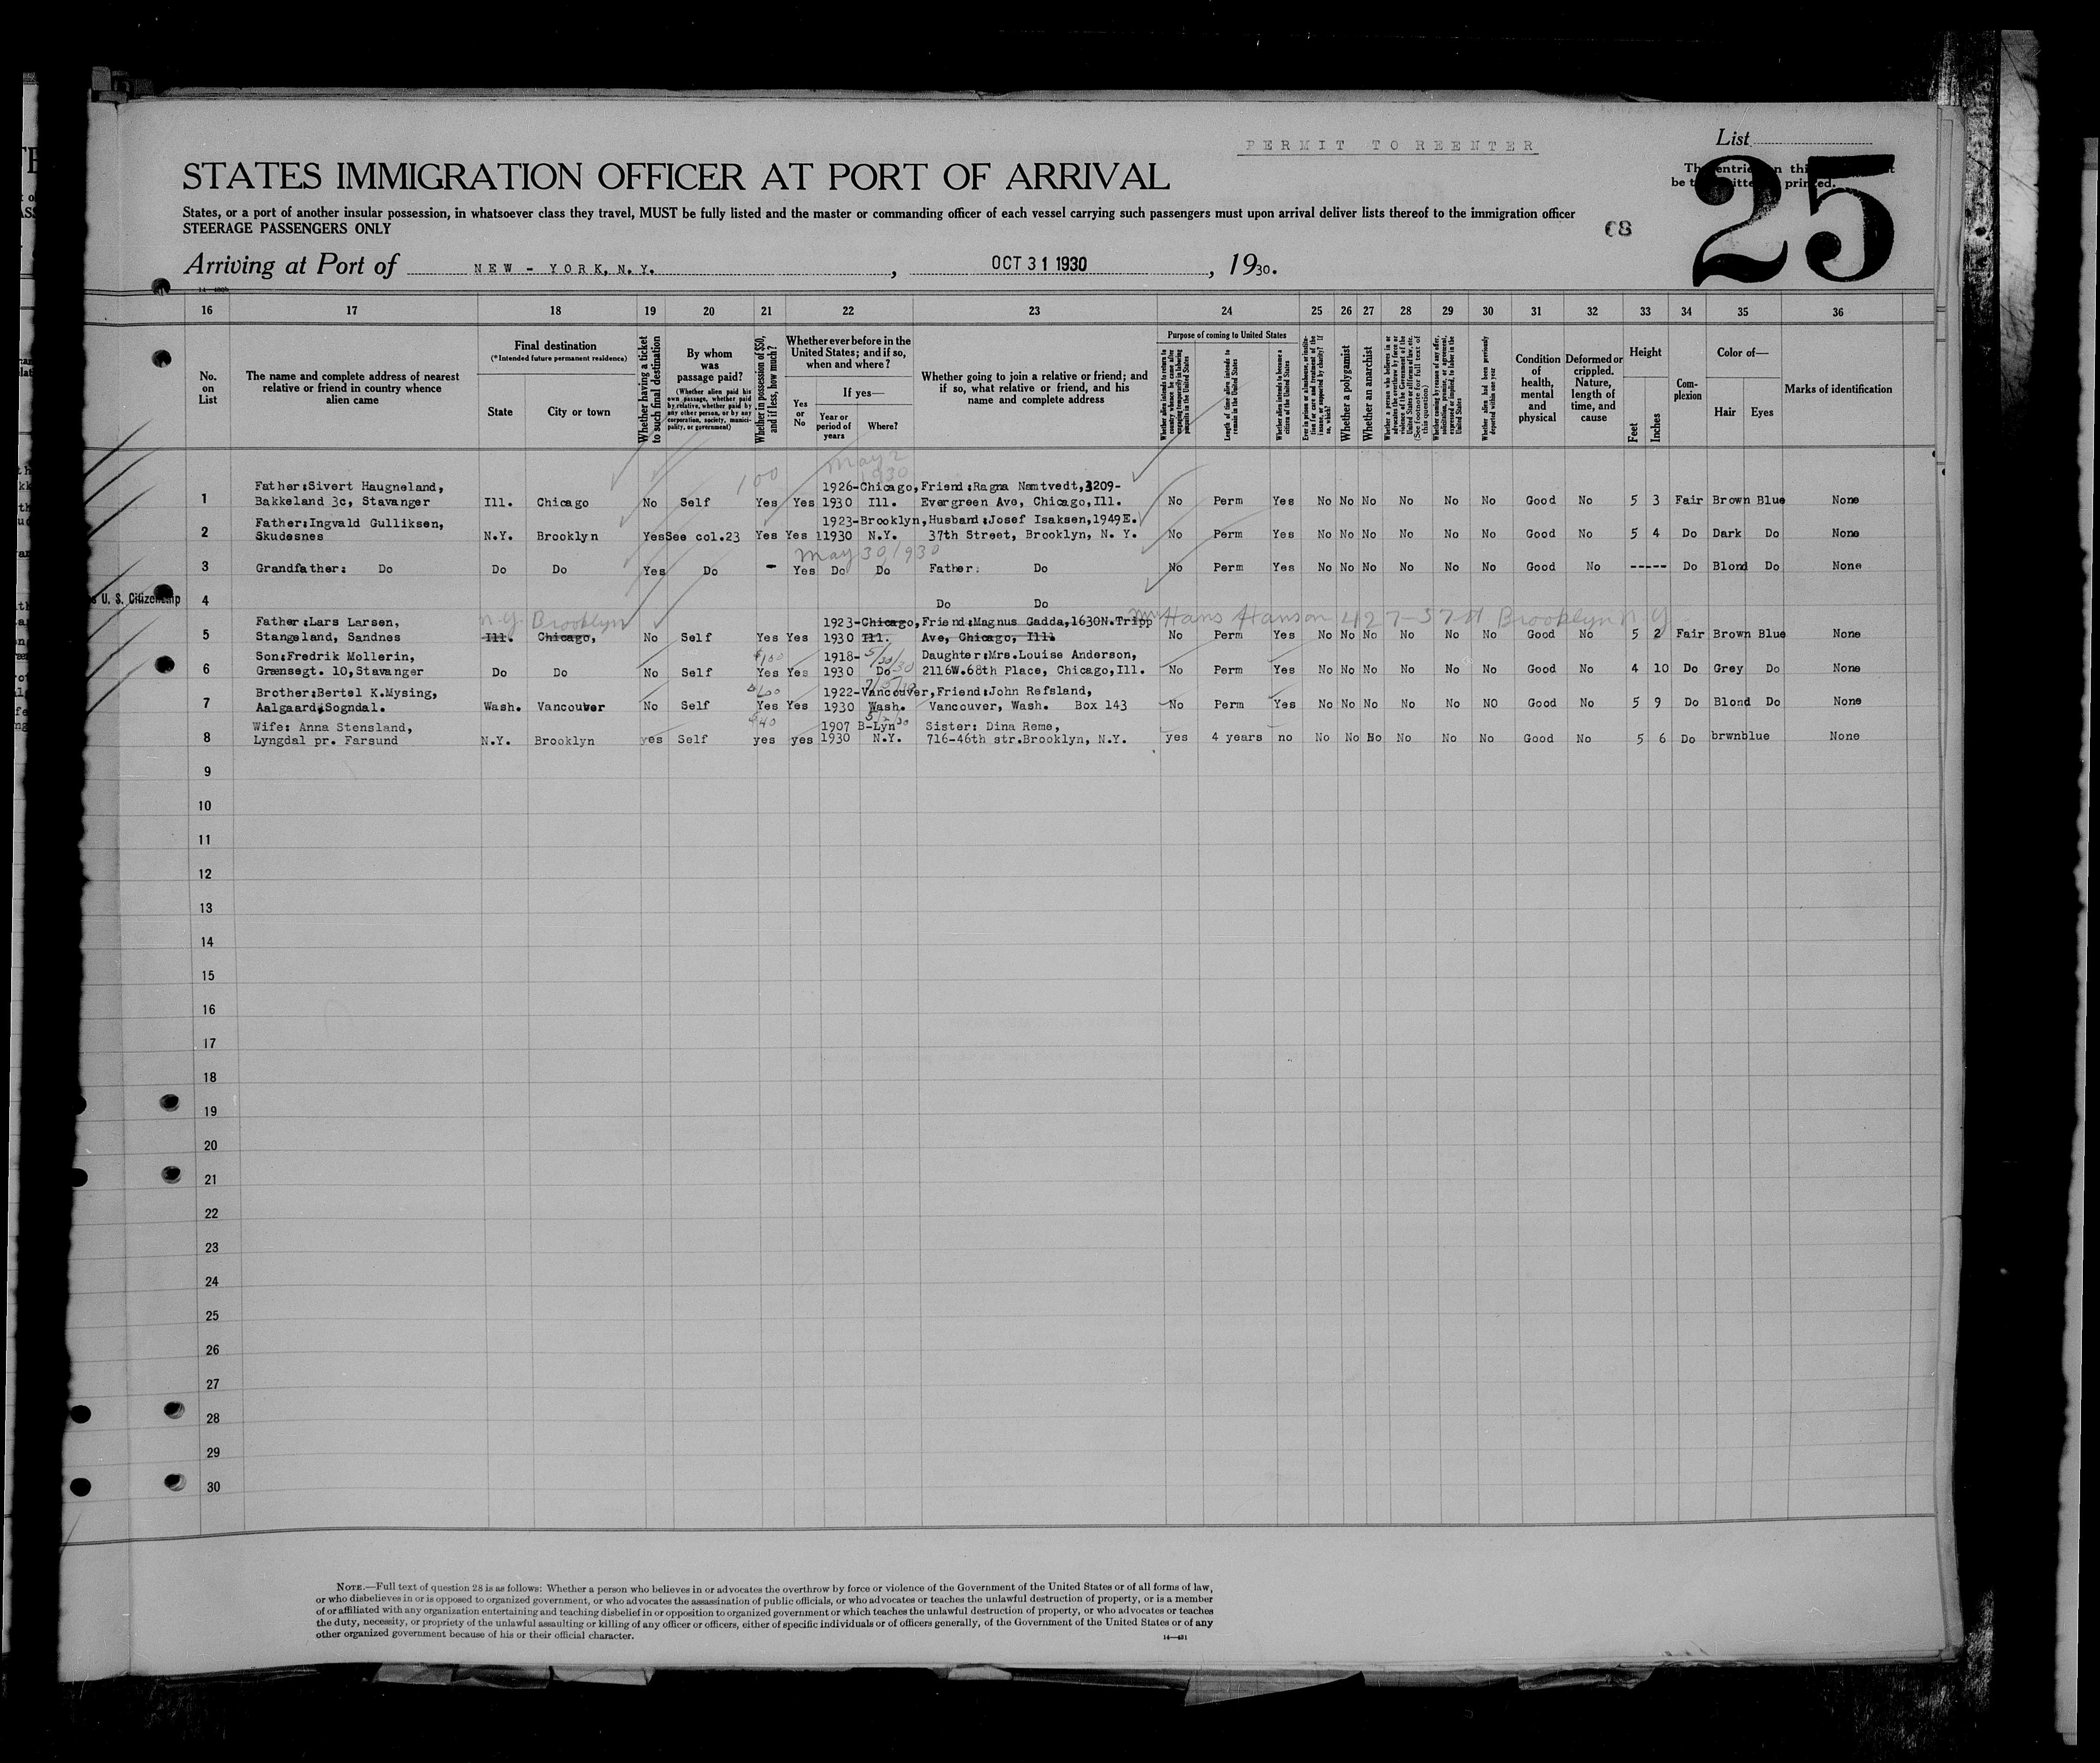 PERMIT TO REENTER
List
25
STATES IMMIGRATION OFFICER AT PORT OF ARRIVAL
States, or a port of another insular possession, in whatsoever class they travel, MUST be fully listed and the master or commanding officer of each vessel carrying such passengers must upon arrival deliver lists thereof to the immigration officer
STEERAGE PASSENGERS ONLY
68
Arriving at Port of NEW - YORK, N. Y., OCT 31 1930, 1930.
16 17 18 19 20 21 22 23 24 25 26 27 28 29 30 31 32 33 34 35 36
No. on List
The name and complete address of nearest relative or friend in country whence alien came
Final destination
(*Intended future permanent residence)
State
City or town
Whether having a ticket to such final destination
By whom was passage paid?
(Whether alien paid his own passage, whether paid by relative, whether paid by any other person, or by any corporation, society, municipality, or government)
Whether in possession of $50, and if less, how much?
Whether ever before in the United States; and if so, when and where?
Yes or No
If yes—
Year or period of years
Where?
Whether going to join a relative or friend; and if so, what relative or friend, and his name and complete address
Purpose of coming to United States
Whether alien intends to return to country whence he came after engaging temporarily in laboring pursuits in the United States
Length of time alien intends to remain in the United States
Whether alien intends to become a citizen of the United States
Whether a polygamist
Whether an anarchist
Whether alien had been previously deported within one year
Condition of health, mental and physical
Deformed or crippled. Nature, length of time, and cause
Height
Feet
Inches
Complexion
Color of—
Hair
Eyes
Marks of identification
100 May 2 1930
Father:Sivert Haugneland, 1926-Chicago, Friend:Ragna Nemtvedt,3209-
1 Bakkeland 3c, Stavanger Ill. Chicago No Self Yes Yes 1930 Ill. Evergreen Ave, Chicago,Ill. No Perm Yes No No No No No No Good No 5 3 Fair Brown Blue None
Father:Ingvald Gulliksen, 1923-Brooklyn, Husband:Josef Isaksen,1949E.
2 Skudesnes N.Y. Brooklyn Yes See col.23 Yes Yes 11930 N.Y. 37th Street, Brooklyn, N. Y. No Perm Yes No No No No No No Good No 5 4 Do Dark Do None
May 30/930
3 Grandfather: Do Do Do Yes Do - Yes Do Do Father: Do No Perm Yes No No No No No No Good No ----- Do Blond Do None
U. S. Citizenship 4 Do Do
N.Y. Brooklyn Hans Hanson 427-57 St Brooklyn N Y
Father:Lars Larsen, 1923-Chicago, Friend:Magnus Gadda,1630N.Tripp
5 Stangeland, Sandnes Ill. Chicago, No Self Yes Yes 1930 Ill. Ave, Chicago, Ill. No Perm Yes No No No No No No Good No 5 2 Fair Brown Blue None
Son:Fredrik Mollerin, $100 1918- 5/30/30 Daughter:Mrs.Louise Anderson,
6 Grænsegt. 10,Stavanger Do Do No Self Yes Yes 1930 Do 2116W.68th Place, Chicago,Ill. No Perm Yes No No No No No No Good No 4 10 Do Grey Do None
Brother:Bertel K.Mysing, 1922-Vancouver, Friend:John Refsland,
7 Aalgaard,Sogndal. Wash. Vancouver No Self Yes Yes 1930 Wash. Vancouver, Wash. Box 143 No Perm Yes No No No No No NO Good No 5 9 Do Blond Do None
Wife: Anna Stensland, $40 1907 B-Lyn Sister: Dina Reme,
8 Lyngdal pr. Farsund N.Y. Brooklyn yes Self yes yes 1930 N.Y. 716-46th str.Brooklyn, N.Y. yes 4 years no No No No No No No Good No 5 6 Do brwn blue None
9
10
11
12
13
14
15
16
17
18
19
20
21
22
23
24
25
26
27
28
29
30
NOTE.—Full text of question 28 is as follows: Whether a person who believes in or advocates the overthrow by force or violence of the Government of the United States or of all forms of law,
or who disbelieves in or is opposed to organized government, or who advocates the assassination of public officials, or who advocates or teaches the unlawful destruction of property, or is a member
of or affiliated with any organization entertaining and teaching disbelief in or opposition to organized government or which teaches the unlawful destruction of property, or who advocates or teaches
the duty, necessity, or propriety of the unlawful assaulting or killing of any officer or officers, either of specific individuals or of officers generally, of the Government of the United States or of any
other organized government because of his or their official character.
14—421